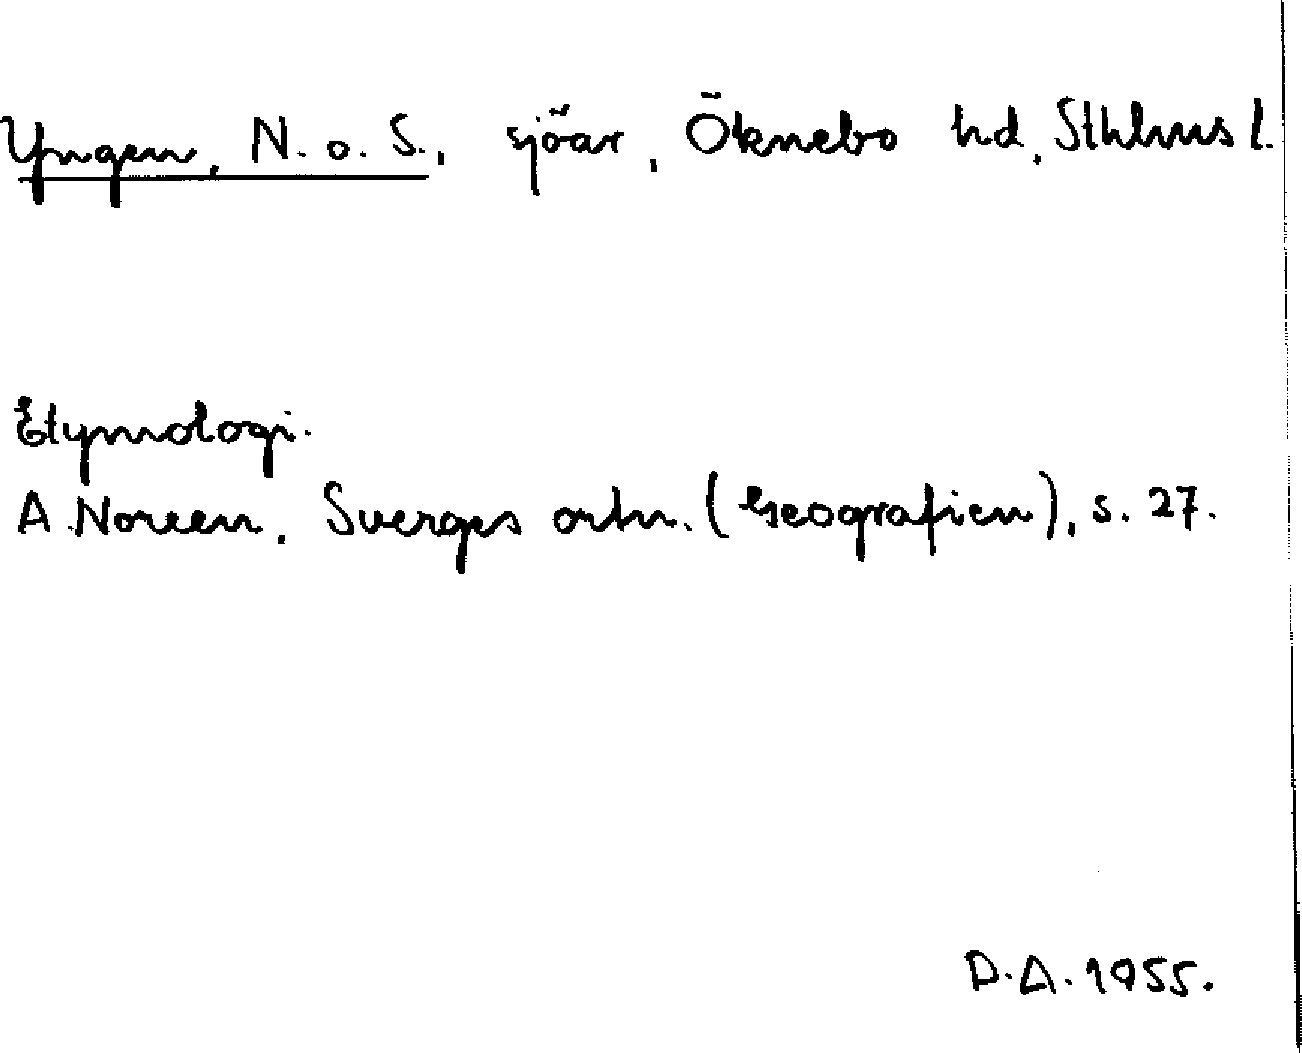 Yngen, N. o. S., sjöar, Öknebo hd, Sthlms l.
Etymologi.
A. Noreen, Sverges ortn. (Geografien), s. 27.
D.A. 1955.